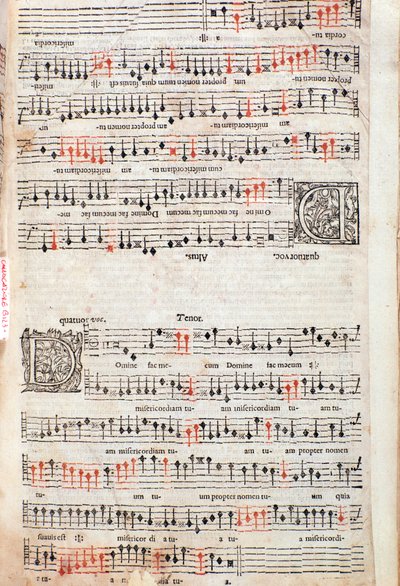 quatuor voc. Altus.
Omine fac mecum Domine fac mecum me-
cum misericordiam tu- am
tu- am propter nomen tu- um
propter nomen tu- um quia suauis est
cordia tu-
quatuor voc. Tenor.
Omine fac me- cum Domine fac mecum
misericordiam tu- am misericordiam tu- am tu-
am misericordiam tu- am tu- am propter nomen
tu- um tu- um propter nomen tu- um quia
suauis est misericor di a tu- a misericordi-
a misericordia tu- a.